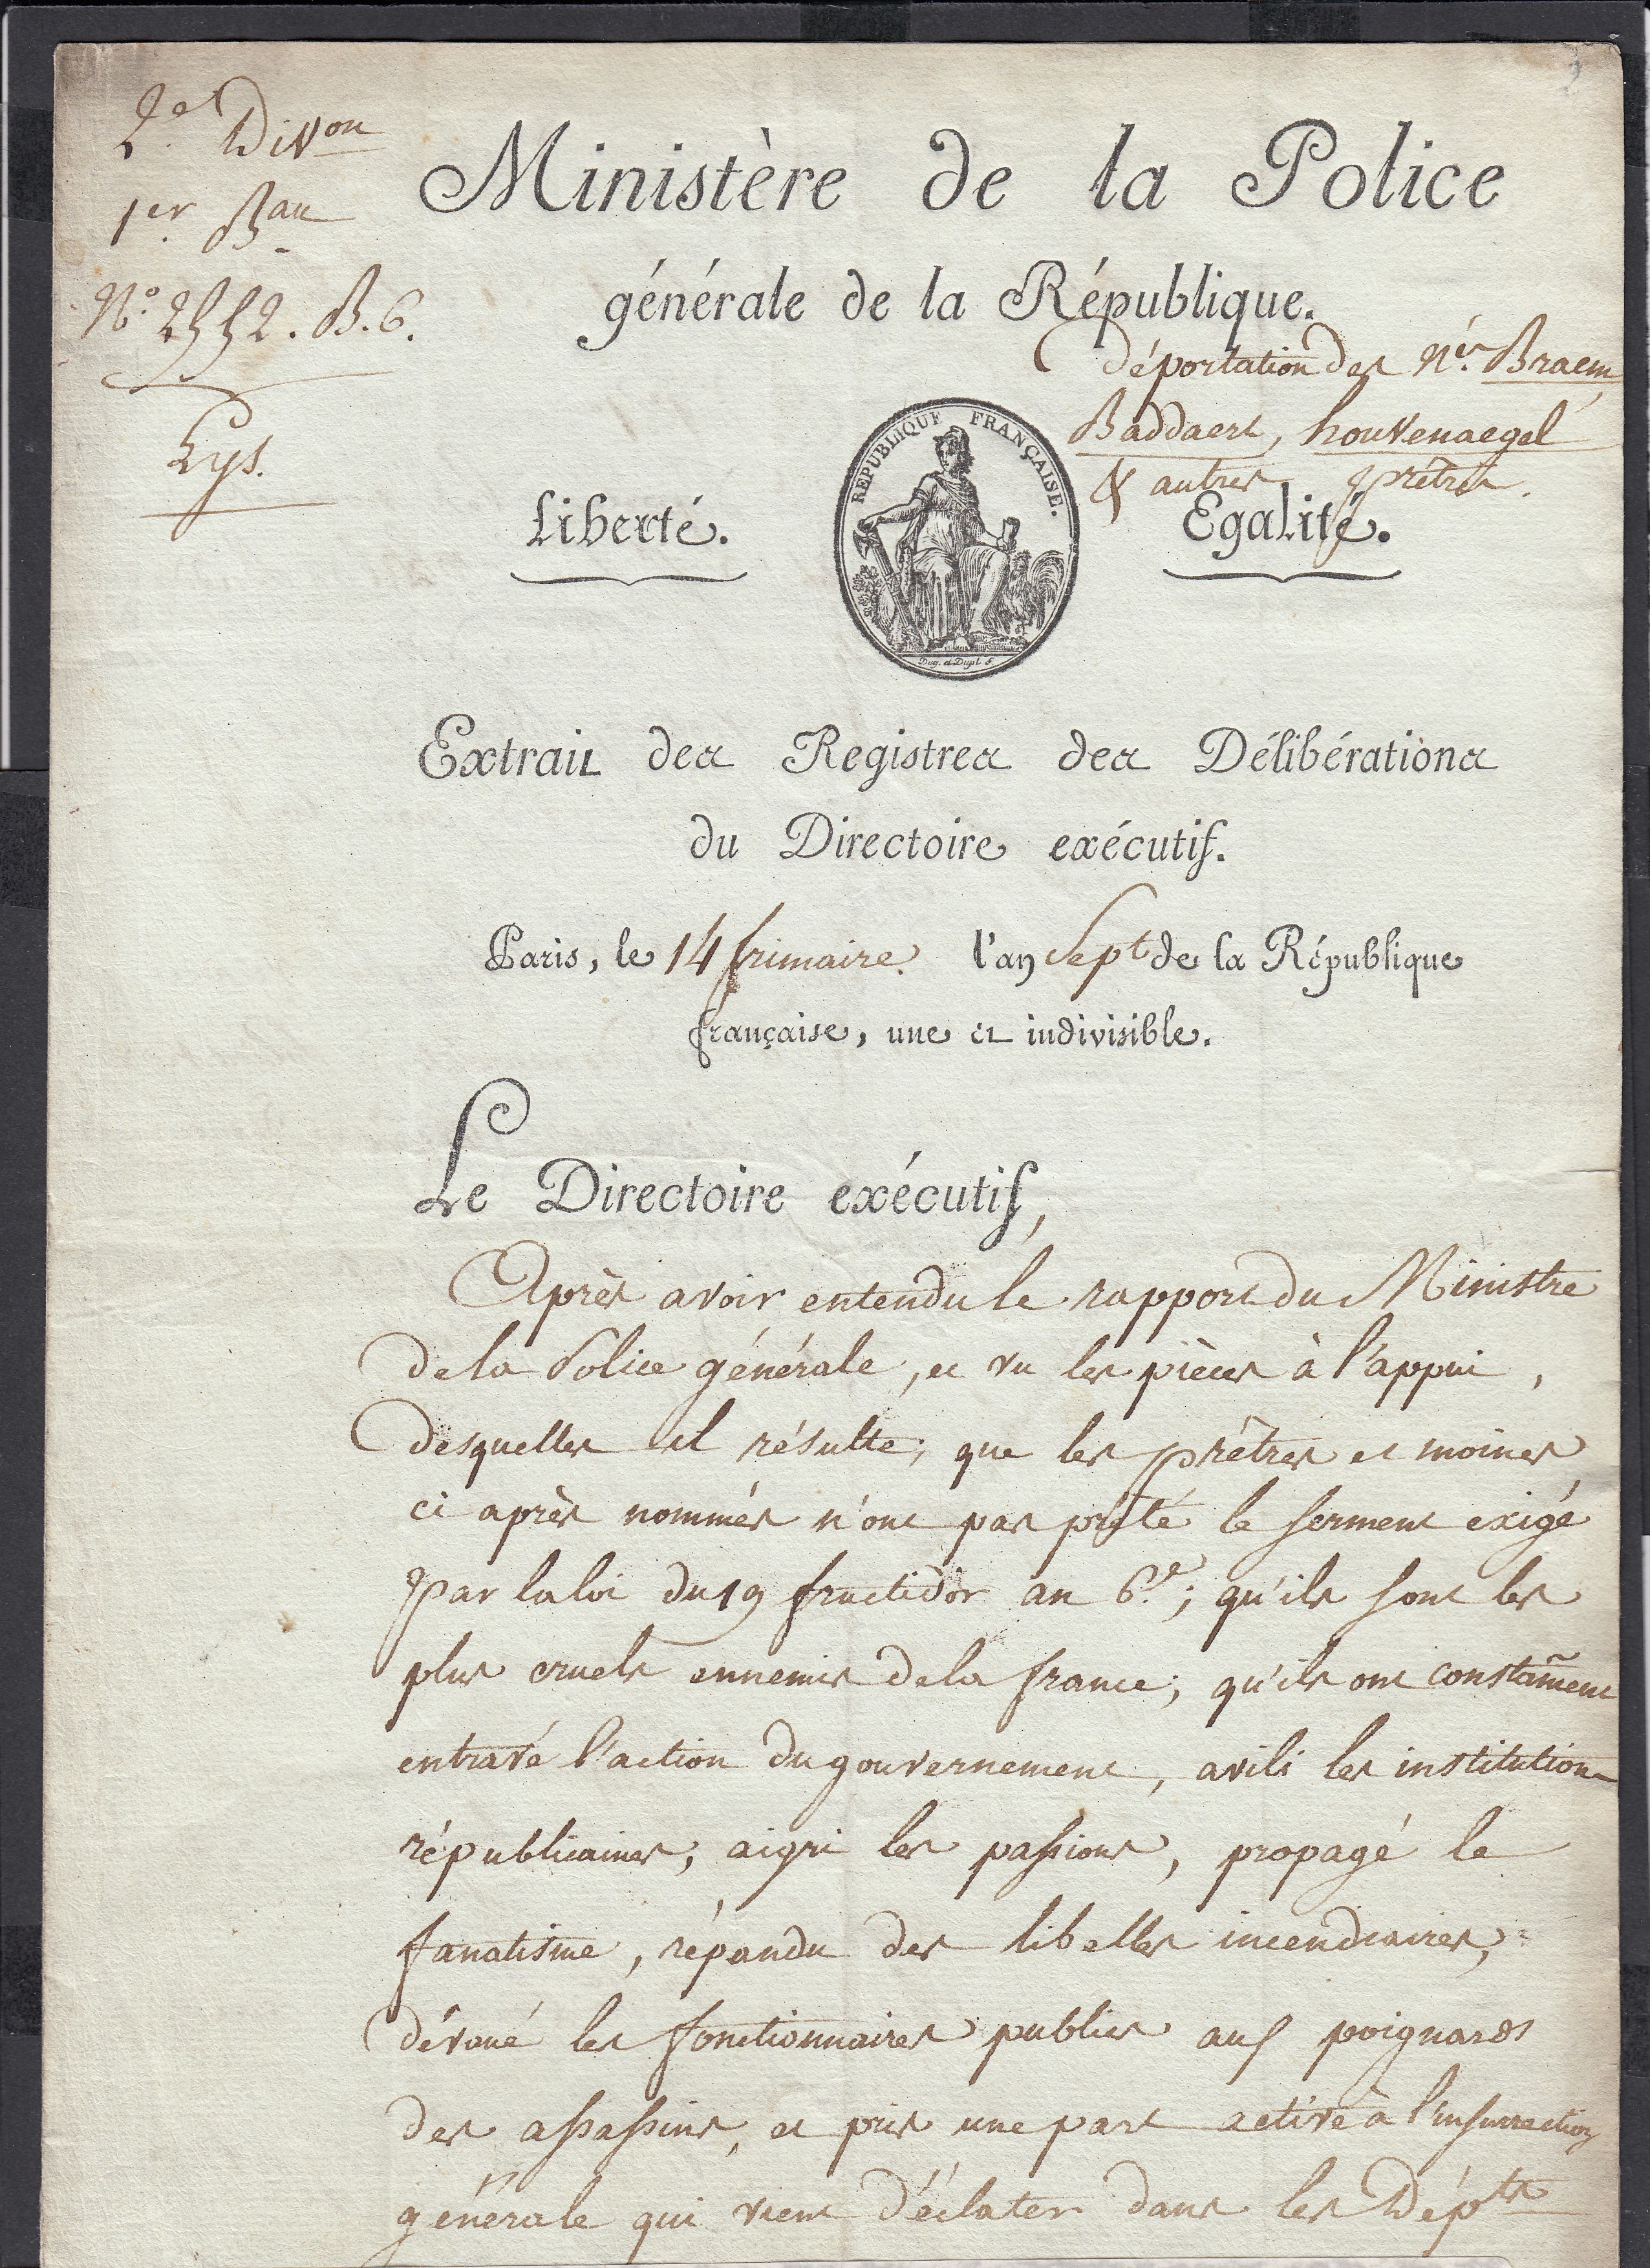 2e. Divon
1er. Bau
No. 2552. B.6.
Lys.
Ministère de la Police
générale de la République.
déportation des Nés. Braem,
Baddaert, houvenaegel
& autres prêtres.
REPUBLIQUE FRANÇAISE.
Liberté.
Egalité.
Dug. et Dupl. f.
Extrait des Registres des Délibérations
du Directoire exécutif.
Paris, le 14 frimaire. l'an Sept de la République
française, une et indivisible.
Le Directoire exécutif,
Après avoir entendu le rapport du Ministre
de la Police générale, et vu les pièces à l'appui,
desquelles il résulte; que les prêtres et moines
ci après nommés n'ont pas prêté le serment exigé
par la loi du 19 fructidor an 6e.; qu'ils sont les
plus cruels ennemis de la france; qu'ils ont constam̃ent
entravé l'action du gouvernement, avili les institutions
républicaines, aigri les passions, propagé le
fanatisme, répandu des libelles incendiaires,
dévoué les fonctionnaires publics aux poignards
des assassins, et pris une part active à l'insurrection
générale qui vient d'éclater dans les Dépts